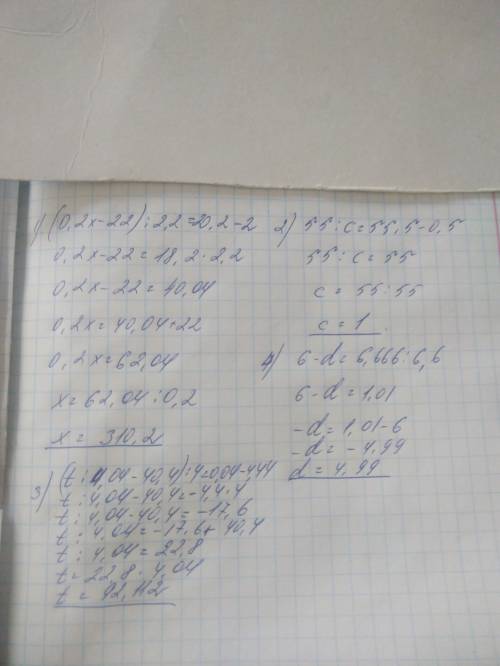 1) (0,2x-22):2,2=20,2-2
0,2x-22=18,2·2,2
0,2x-22=40,04
0,2x=40,04+22
0,2x=62,04
x=62,04:0,2
x=310,2
2) 55:c=55,5-0,5
55:c=55
c=55:55
c=1.
3) (t:4,04-40,4):4=0,04-4,44
t:4,04-40,4=-4,4·4
t:4,04-40,4=-17,6
t:4,04=-17,6+40,4
t:4,04=22,8
t=22,8·4,04
t=92,112
4) 6-d=6,666:6,6
6-d=1,01
-d=1,01-6
-d=-4,99
d=4,99